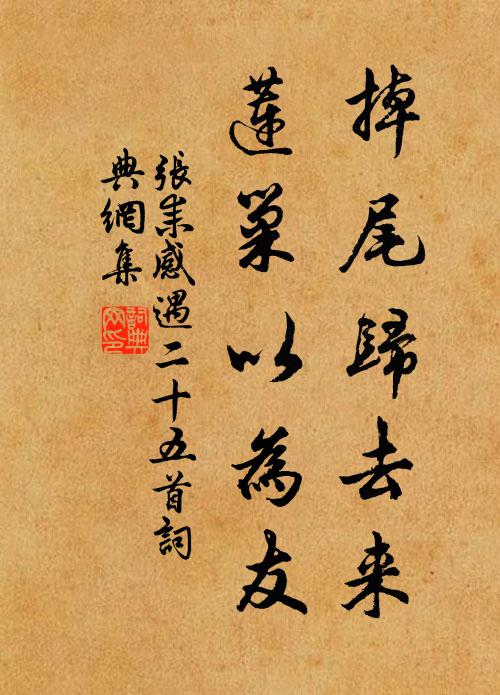 掉尾歸去来
蓮巢以為友
張耒感遇二十五首詞
典網集
詞典
网印